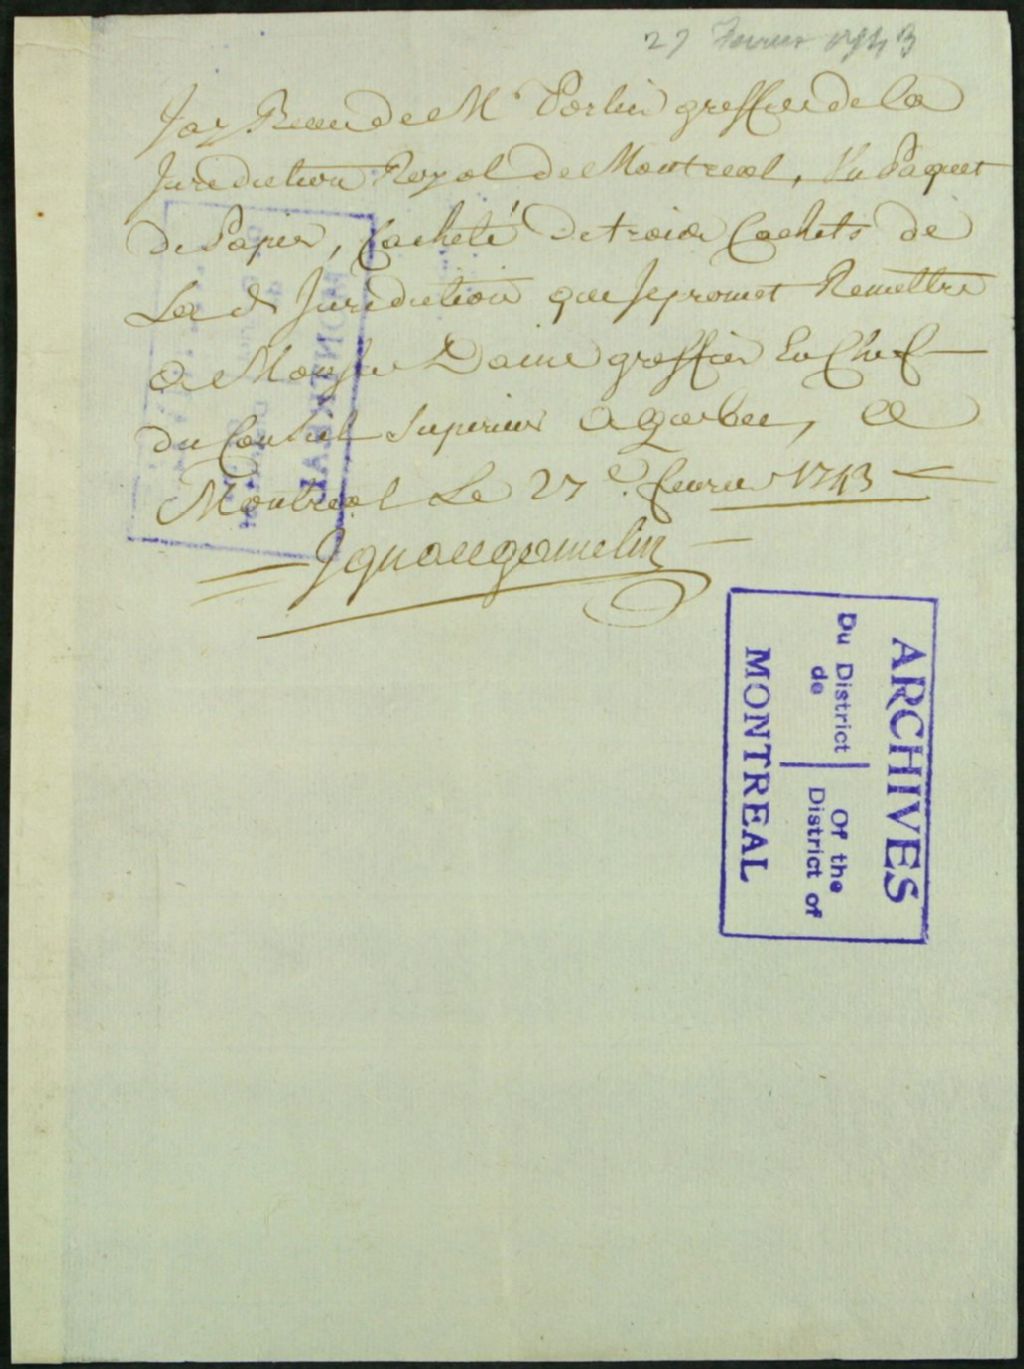 27 Fevrier 1743
Jay Receu de M<sup>r</sup> Porlier greffier de la
Juridiction Royal de Montreal, Un Paquet
de Papier, Cacheté de trois Cachets de
La d Juridiction que Je promet Remettre
a Monsieur Daine greffier En Chef
du Conseil Superieur a quebec, a
Montreal Le 27<sup>e</sup> fevrier 1743
Ignace gamelin
ARCHIVES
Du District de
Of the District of
MONTREAL